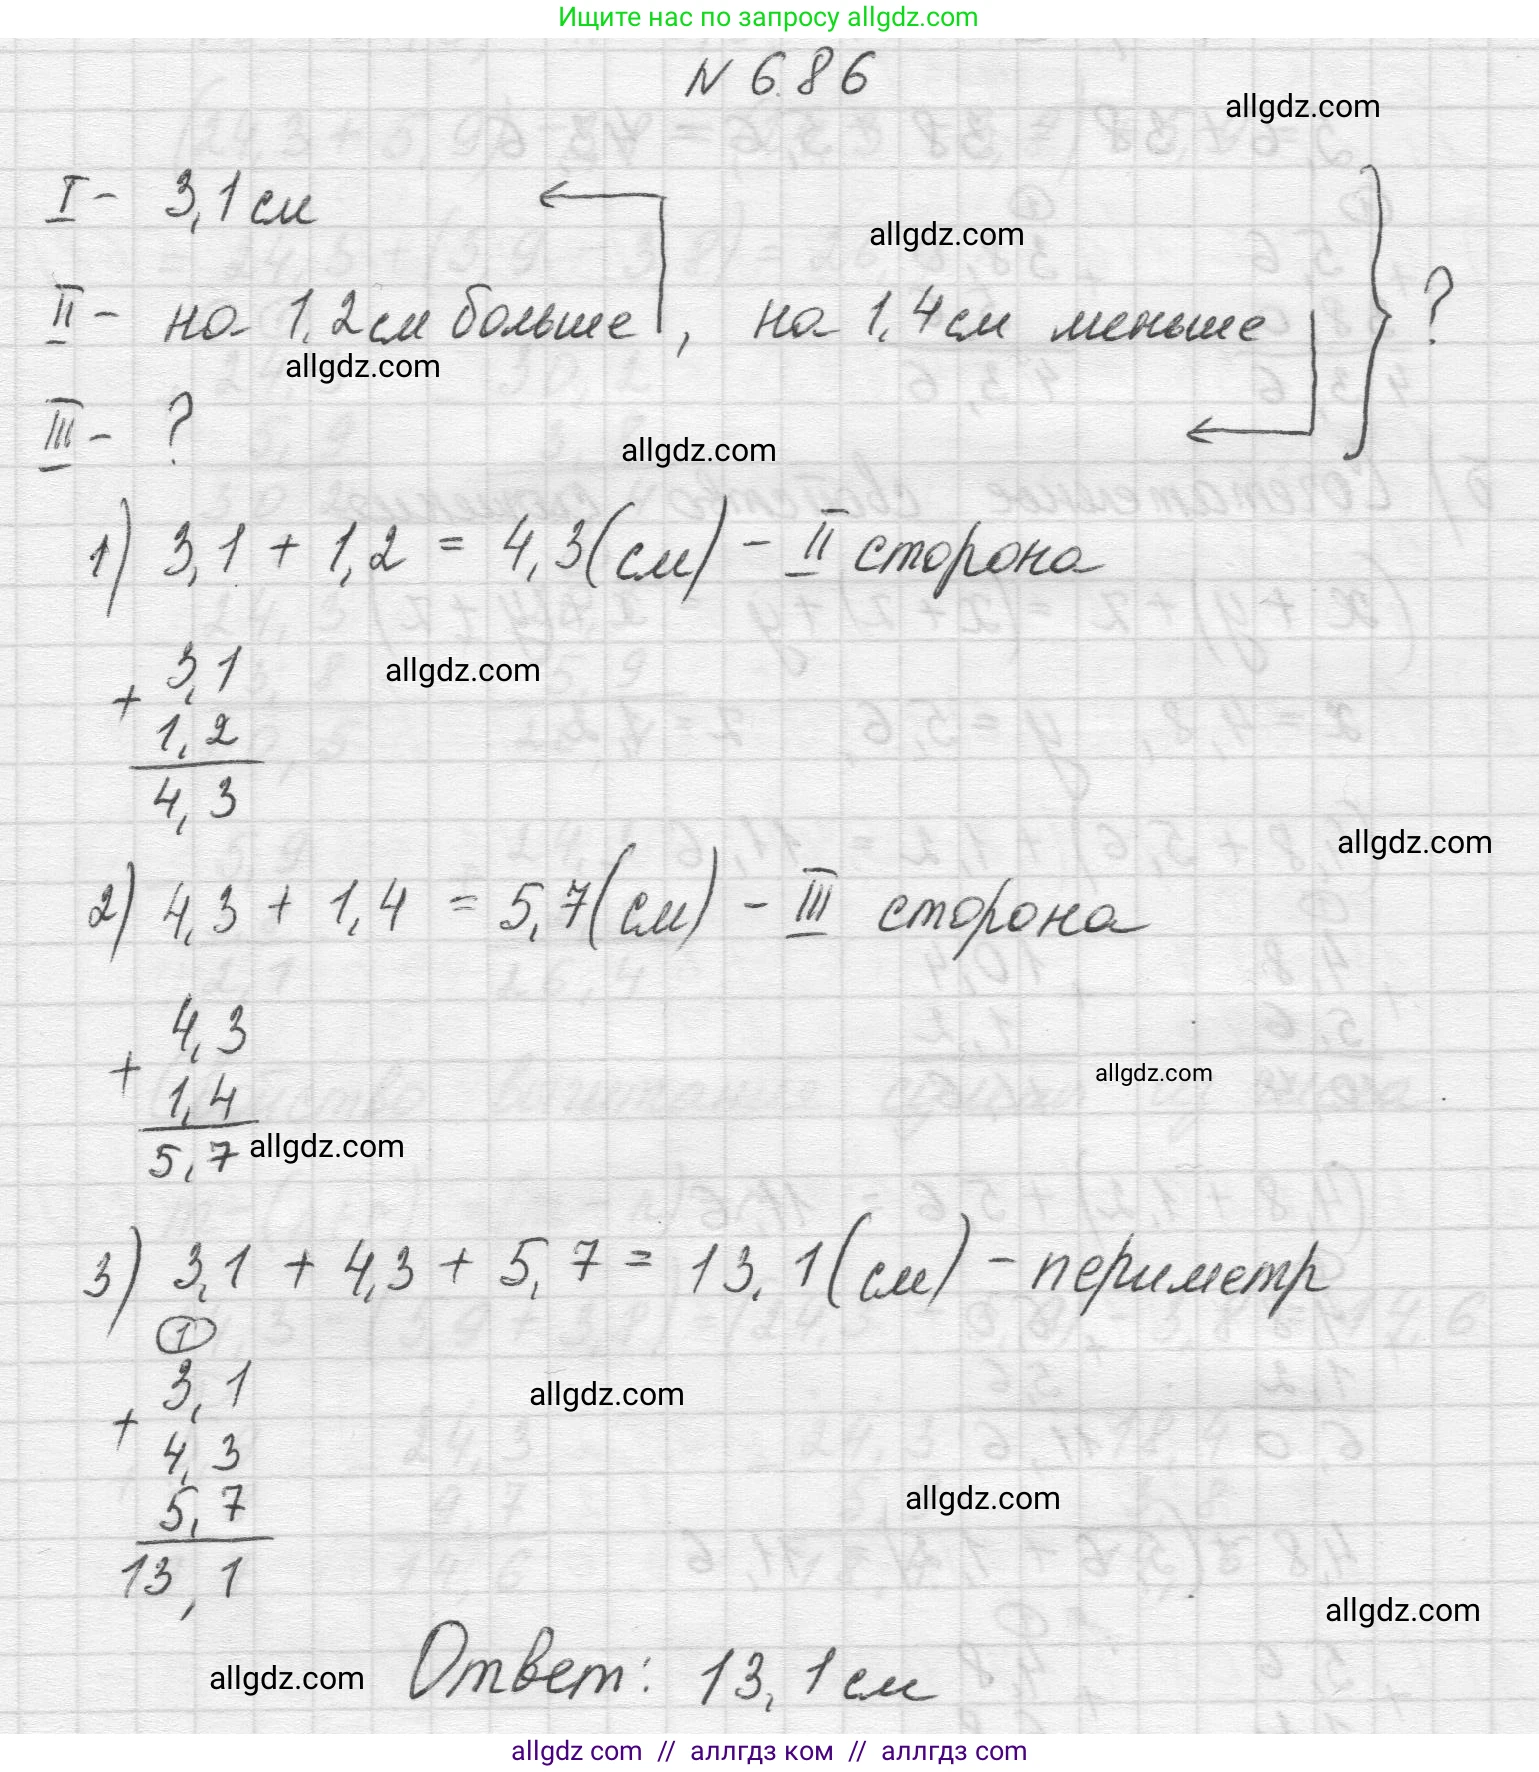 Ищите нас по запросу allgdz.com
N 686
allgdz.com
I - 3,1 см
allgdz.com
II - на 1,2 см больше, на 1,4 см меньше ?
allgdz.com
III - ?
allgdz.com
1) 3,1 + 1,2 = 4,3 (см) - II сторона
3,1
allgdz.com
+
1,2
4,3
allgdz.com
2) 4,3 + 1,4 = 5,7 (см) - III сторона
4,3
+
allgdz.com
1,4
5,7
allgdz.com
3) 3,1 + 4,3 + 5,7 = 13,1 (см) - периметр
1
3,1
allgdz.com
+
4,3
5,7
allgdz.com
13,1
allgdz.com
allgdz.com
Ответ: 13,1 см
allgdz com // аллгдз ком // аллгдз.com